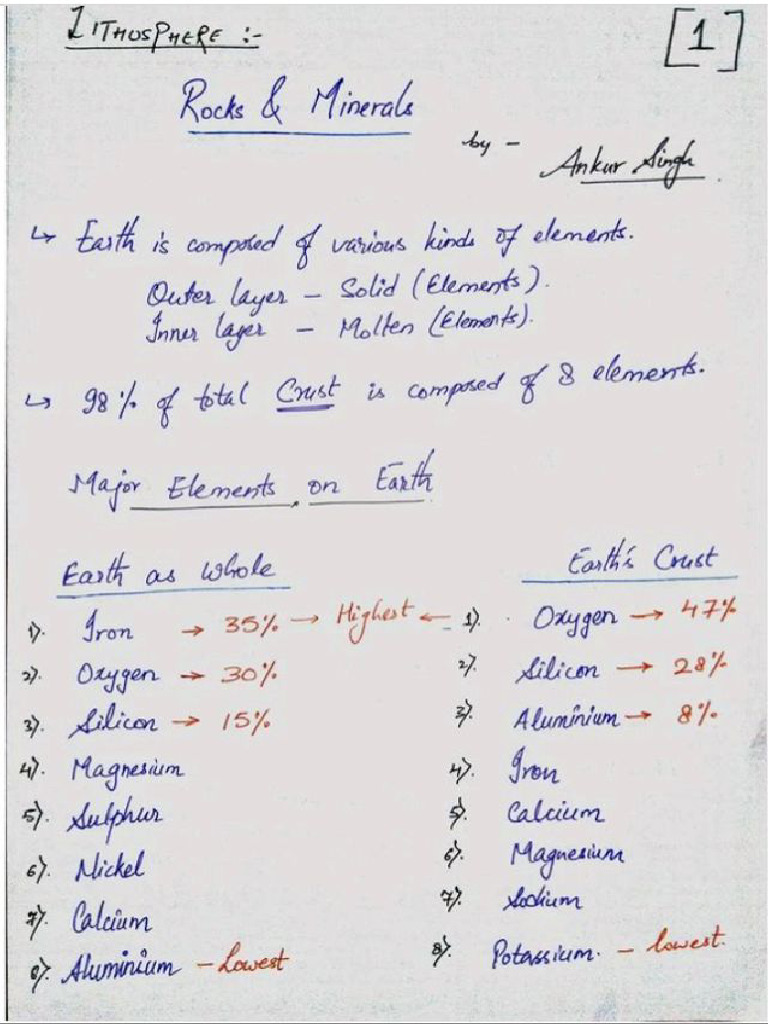 LITHOSPHERE :-
[1]
Rocks & Minerals
by - Ankur Singh
↳ Earth is composed of various kinds of elements.
Outer layer - Solid (Elements).
Inner layer - Molten (Elements).
↳ 98% of total Crust is composed of 8 elements.
Major Elements on Earth
Earth as Whole
1). Iron → 35% → Highest
2). Oxygen → 30%
3). Silicon → 15%
4). Magnesium
5). Sulphur
6). Nickel
7). Calcium
8). Aluminium - Lowest
Earth's Crust
← 1). Oxygen → 47%
2). Silicon → 28%
3). Aluminium → 8%
4). Iron
5). Calcium
6). Magnesium
7). Sodium
8). Potassium. - lowest.